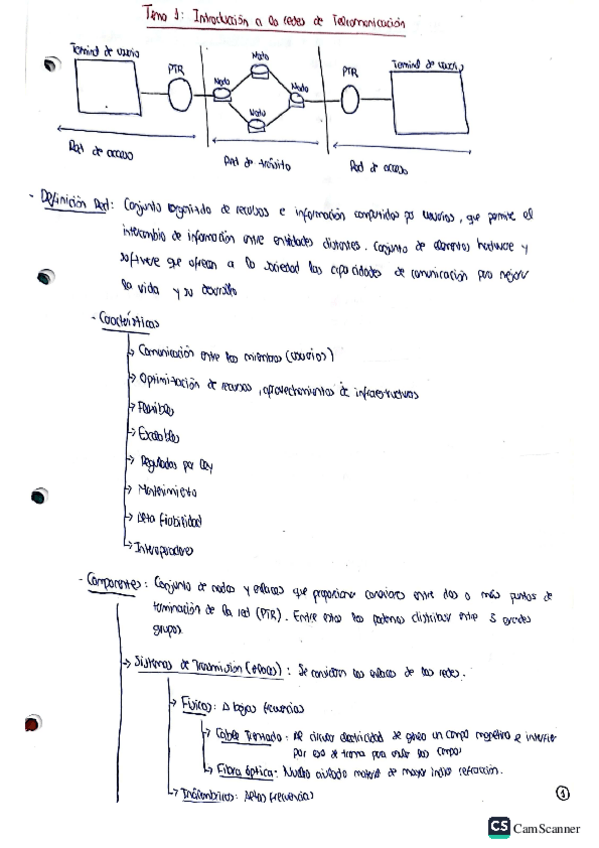 Tema 1: Introducción a la redes de Telecomunicación
Terminal de usuario
PTR
Nodo
Nodo
Nodo
Nodo
PTR
Terminal de usuario
Red de acceso
Red de tránsito
Red de acceso
- Definición Red: Conjunto organizado de recursos e información compartidos por usuarios, que permite el
intercambio de información entre entidades distantes. Conjunto de elementos hardware y
software que ofrecen a la sociedad las capacidades de comunicación para mejorar
la vida y su desarrollo
- Características
→ Comunicación entre los miembros (usuarios)
→ Optimización de recursos, aprovechamientos de infraestructuras
→ Flexibles
→ Escalables
→ Reguladas por ley
→ Mantenimiento
→ Alta fiabilidad
→ Interoperadores
- Componentes: Conjunto de nodos y enlaces que proporcionan conexiones entre dos o más puntos de
terminación de la red (PTR). Entre estos los podemos distribuir entre 3 grandes
grupos.
→ Sistemas de Transmisión (enlaces): Se consideran los enlaces de las redes.
→ Físicos: A bajas frecuencias
→ Cable Trenzado: Al circular electricidad se genera un campo magnético e interfiere
por eso se trenza para anular los campos
→ Fibra óptica: Núcleo aislado material de mayor índice refracción.
→ Inalámbricos: Altas frecuencias
1
CS CamScanner